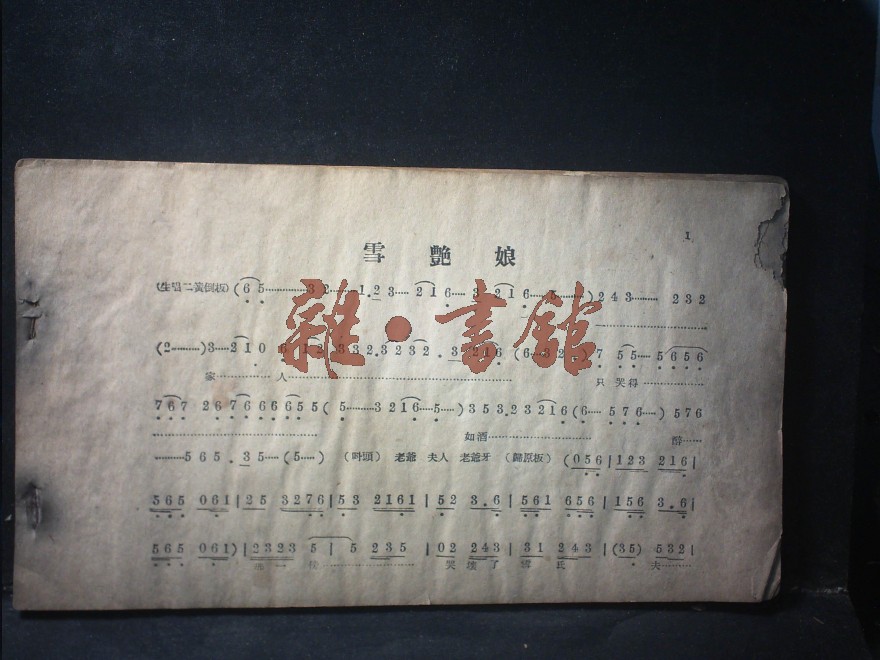 1
雪艷娘
(生唱二簧倒板) (6 5············3 2·······1.2 3····· 2 1 6····· 3 2 1 6····5·········) 2 4 3······ 2 3 2
(2·········) 3····2 1 0 6 1 2 3 3 2.3 2 3 2 . 3 2 1 6 (6····3 2····) 7 5 5···· 5 6 5 6
家·············· 人························ 只 哭得···············
7 6 7 2 6 7 6 6 6 6 5 5 ( 5·········3 2 1 6····5·····) 3 5 3.2 3 2 1 6 (6···· 5 7 6····) 5 7 6
如酒························ 醉······
·········5 6 5 . 3 5···· (5·····) (叫頭) 老爺 夫人 老爺牙 (歸原板) (0 5 6 | 1 2 3 2 1 6 |
5 6 5 0 6 1 | 2 5 3 2 7 6 | 5 3 2 1 6 1 | 5 2 3 . 6 | 5 6 1 6 5 6 | 1 5 6 3 . 6 |
5 6 5 0 6 1) | 2 3 2 3 5 | 5 2 3 5 | 0 2 2 4 3 | 3 1 2 4 3 | (3 5) 5 3 2 |
哭壞了 雪 氏 夫·········
雜·書館